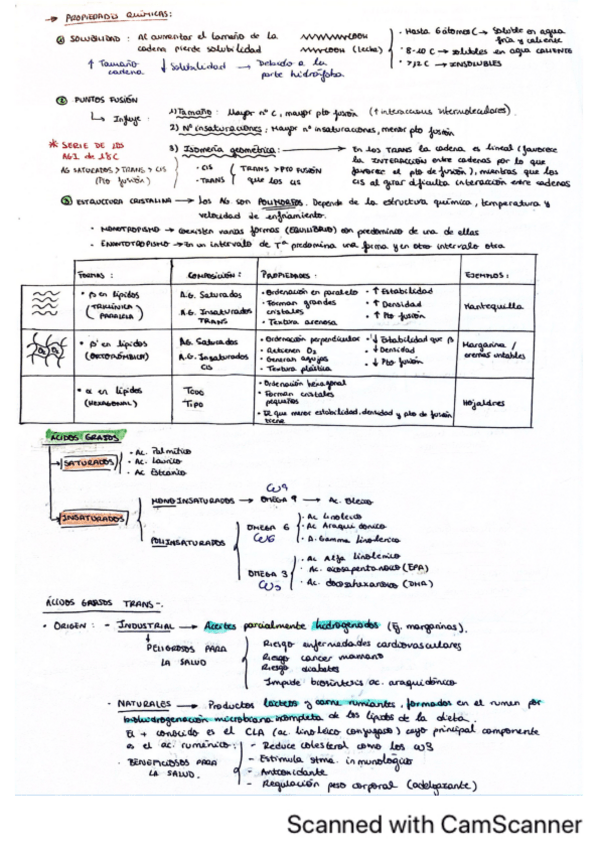 → PROPIEDADES QUÍMICAS:
① SOLUBILIDAD: Al aumentar el tamaño de la cadena pierde solubilidad
COOH
COOH (leche)
· Hasta 6 átomos C → soluble en agua fría y caliente
· 8-10 C → solubles en agua CALIENTE
· >12 C → INSOLUBLES
↑ Tamaño cadena ↓ Solubilidad → Debido a la parte hidrófoba
② PUNTOS FUSIÓN
↳ Influye:
1) Tamaño: Mayor nº C, mayor pto fusión (↑ interacciones intermoleculares).
2) Nº insaturaciones: Mayor nº insaturaciones, menor pto fusión
3) Isomería geométrica:
· CIS
· TRANS
TRANS > PTO FUSIÓN que los cis
→ En los TRANS la cadena, es lineal (favorece la INTERACCIÓN entre cadenas por lo que favorece el pto de fusión), mientras que los CIS al girar dificulta interacción entre cadenas
* SERIE DE LOS AGI de 18C
AG SATURADOS > TRANS > CIS (Pto fusión)
③ ESTRUCTURA CRISTALINA → los AG son POLIMORFOS. Depende de la estructura química, temperatura y velocidad de enfriamiento.
· MONOTROPISMO → coexisten varias formas (EQUILIBRIO) con predominio de una de ellas
· ENANTOTROPISMO → En un intervalo de Tª predomina una forma y en otro intervalo otra
FORMAS: COMPOSICIÓN: PROPIEDADES: EJEMPLOS:
· β en lípidos (TRICLÍNICA PARALELA)
A.G. Saturados
A.G. Insaturados TRANS
· Ordenación en paralelo
· Forman grandes cristales
· Textura arenosa
· ↑ Estabilidad
· ↑ Densidad
· ↑ Pto fusión
Mantequilla
· β' en lípidos (ORTORRÓMBICA)
AG. Saturados
A.G. Insaturados CIS
· Ordenación perpendicular
· Retienen O₂
· Generan agujas
· Textura plástica
· ↓ Estabilidad que β
· ↓ Densidad
· ↓ Pto fusión
Margarina / cremas untables
· α en lípidos (HEXAGONAL)
TODO TIPO
· Ordenación hexagonal
· Forman cristales pequeños
· El que menor estabilidad, densidad y pto de fusión tiene
Hojaldres
ÁCIDOS GRASOS
→ SATURADOS
· Ac. Palmítico
· Ac. Laurico
· Ac Esteárico
→ INSATURADOS
MONOINSATURADOS → OMEGA 9 → Ac. Oleico
ω9
POLIINSATURADOS
OMEGA 6
ω6
· Ac Linoleico
· Ac Araquidónico
· A. Gamma linolénico
OMEGA 3
ω3
· Ac Alfa linolénico
· Ac. eicosapentanoico (EPA)
· Ac. docosahexanoico (DHA)
ÁCIDOS GRASOS TRANS -.
· ORIGEN: - INDUSTRIAL → Aceites parcialmente hidrogenados (Ej. margarinas).
↓ PELIGROSOS PARA LA SALUD
Riesgo enfermedades cardiovasculares
Riesgo cancer mamario
Riesgo diabetes
Impide biosíntesis ac. araquidónico
- NATURALES → Productos lácteos y carne rumiantes, formados en el rumen por
biohidrogenación microbiana incompleta de los lípidos de la dieta.
El + conocido es el CLA (ac. linoleico conjugado) cuyo principal componente
es el ac. ruménico:
· BENEFICIOSOS PARA LA SALUD.
- Reduce colesterol como los ω3
- Estimula stma. inmunológico
- Antioxidante
- Regulación peso corporal (adelgazante)
Scanned with CamScanner